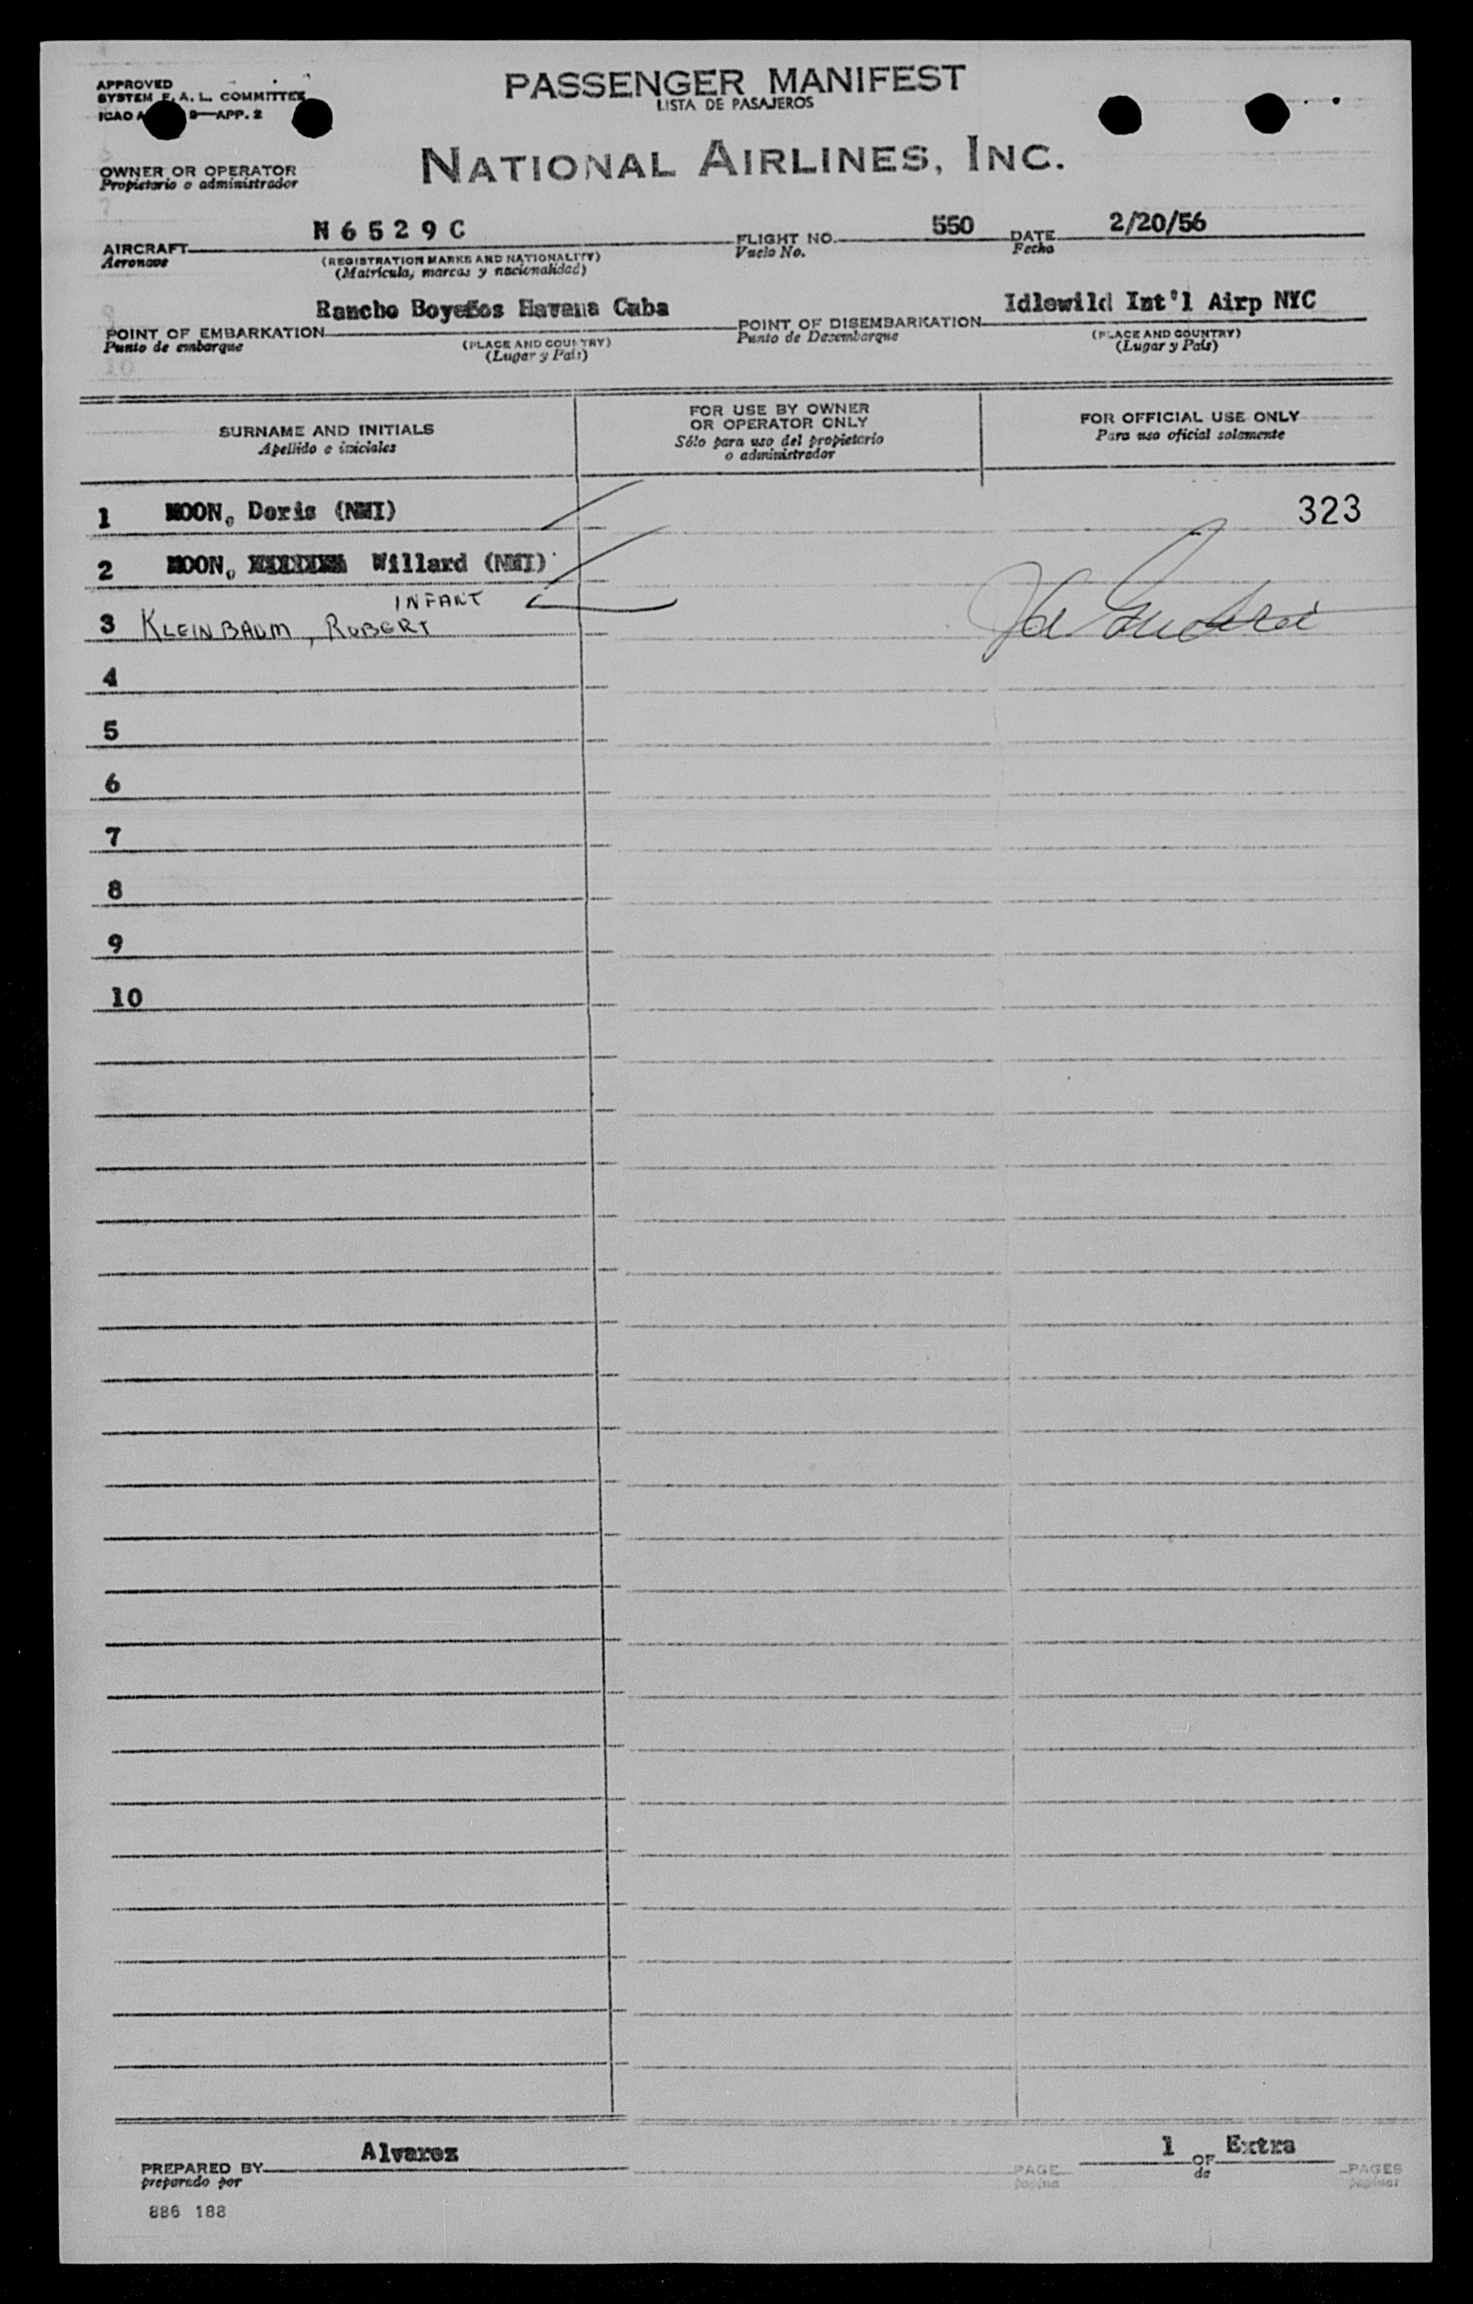 APPROVED
SYSTEM F. A. L. COMMITTEE
ICAO A 9—APP. 2
PASSENGER MANIFEST
LISTA DE PASAJEROS
NATIONAL AIRLINES, INC.
OWNER OR OPERATOR
Propietario o administrador
AIRCRAFT N 6 5 2 9 C FLIGHT NO. 550 DATE 2/20/56
Aeronave (REGISTRATION MARKS AND NATIONALITY) Vuelo No. Fecha
(Matrícula, marcas y nacionalidad)
POINT OF EMBARKATION Rancho Boyeños Havana Cuba POINT OF DISEMBARKATION Idlewild Int'l Airp NYC
Punto de embarque (PLACE AND COUNTRY) Punto de Desembarque (PLACE AND COUNTRY)
(Lugar y País) (Lugar y País)
SURNAME AND INITIALS
Apellido e iniciales
FOR USE BY OWNER
OR OPERATOR ONLY
Sólo para uso del propietario
o administrador
FOR OFFICIAL USE ONLY
Para uso oficial solamente
1 MOON, Doris (NMI) 323
2 MOON, Willard (NMI)
INFANT
3 KLEINBAUM, ROBERT
4
5
6
7
8
9
10
PREPARED BY Alvarez PAGE 1 OF Extra PAGES
preparado por pagina de paginas
886 188